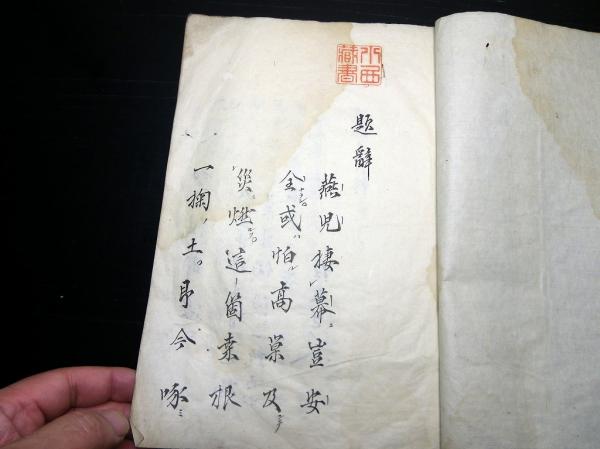 小西
藏書
題辭
燕児棲幕豈安
全或怕高巣及
災燃這箇桒根
一掬土即今啄